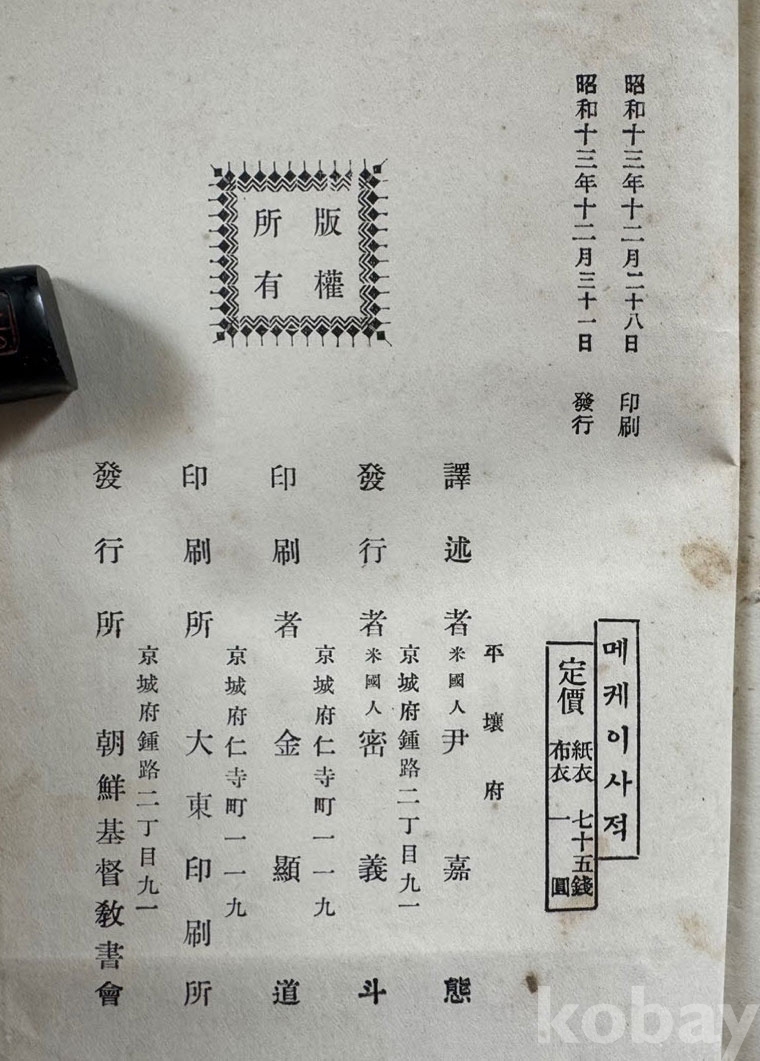 昭和十三年十二月二十八日 印刷
昭和十三年十二月三十一日 發行
版權
所有
메케이사적
定價 紙衣 七十五錢
布衣 一圓
平壤府
譯述者 米國人 尹嘉態
京城府鍾路二丁目九一
發行者 米國人 密義斗
京城府仁寺町一一九
印刷者 金顯道
京城府仁寺町一一九
印刷所 大東印刷所
京城府鍾路二丁目九一
發行所 朝鮮基督敎書會
kobay